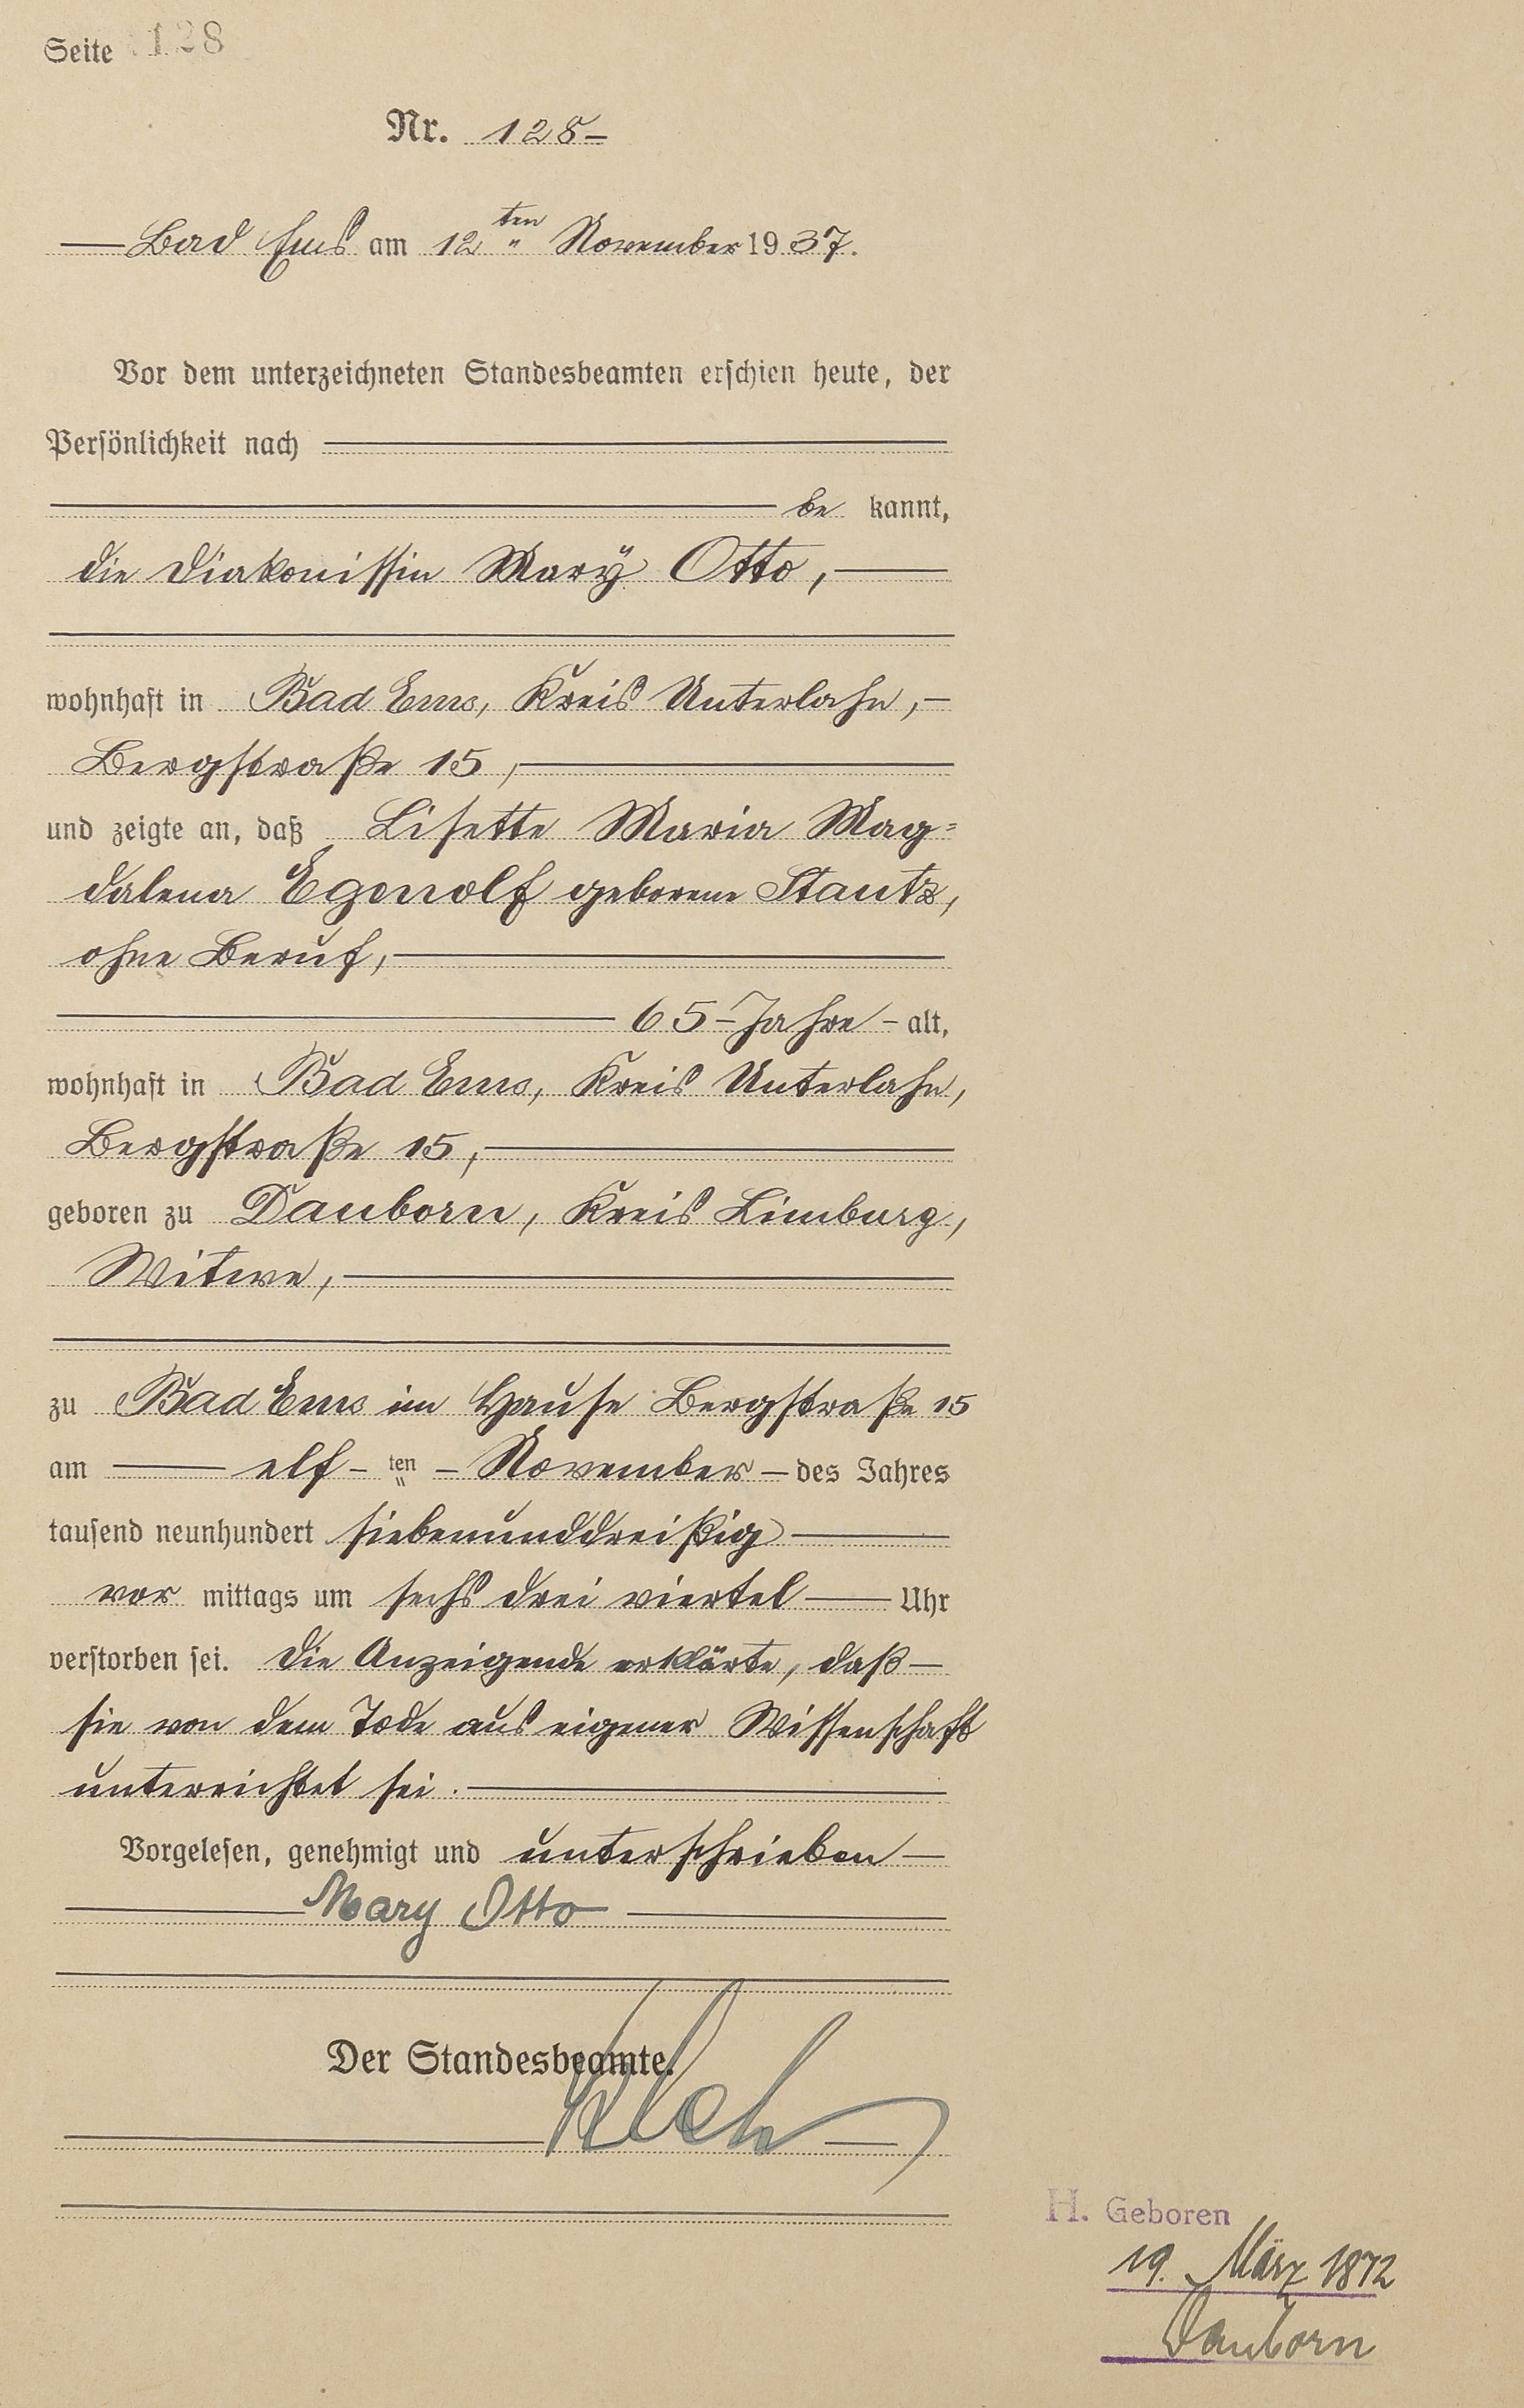 Seite 128
Nr. 128-
Bad Ems am 12ten November 1937.
Vor dem unterzeichneten Standesbeamten erschien heute, der
Persönlichkeit nach
be kannt,
die Diakonissin Mary Otto,
wohnhaft in Bad Ems, Kreis Unterlahn,
Bergstraße 15,
und zeigte an, daß Lisette Maria Mag=
dalena Egenolf geborene Stautz,
ohne Beruf,
65 Jahre alt,
wohnhaft in Bad Ems, Kreis Unterlahn,
Bergstraße 15,
geboren zu Dauborn, Kreis Limburg,
Witwe,
zu Bad Ems im Hause Bergstraße 15
am elf-ten November des Jahres
tausend neunhundert siebenunddreißig
vor mittags um sechs drei viertel Uhr
verstorben sei. Die Anzeigende erklärte, daß
sie von dem Tode aus eigener Wissenschaft
unterrichtet sei.
Vorgelesen, genehmigt und unterschrieben
Mary Otto
Der Standesbeamte.
H. Geboren
19. März 1872
Dauborn